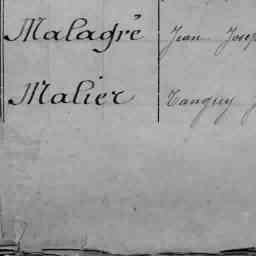 Malagré Jean Josep
Malier Tanguy J